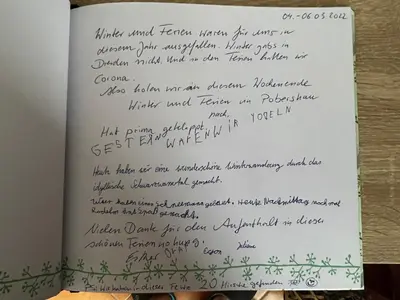 04.-06.03.2022
Winter und Ferien waren für uns in
diesem Jahr ausgefallen. Winter gabs in
Dresden nicht. Und in den Ferien hatten wir
Corona.
Also holen wir an diesem Wochenende
Winter und Ferien in Pobershau
nach.
Hat prima geklappt.
GESTERN WAREN WIR RODELN
Heute haben wir eine wunderschöne Winterwanderung durch das
idyllische Schwarzwassertal gemacht.
Wir haben uns Heute Nachmittag noch mal
Rodeln Spaß gemacht.
Vielen Dank für den Aufenthalt in dieser
schönen Ferien
Juliane
in dieser Fewo 20 Hirsche gefunden